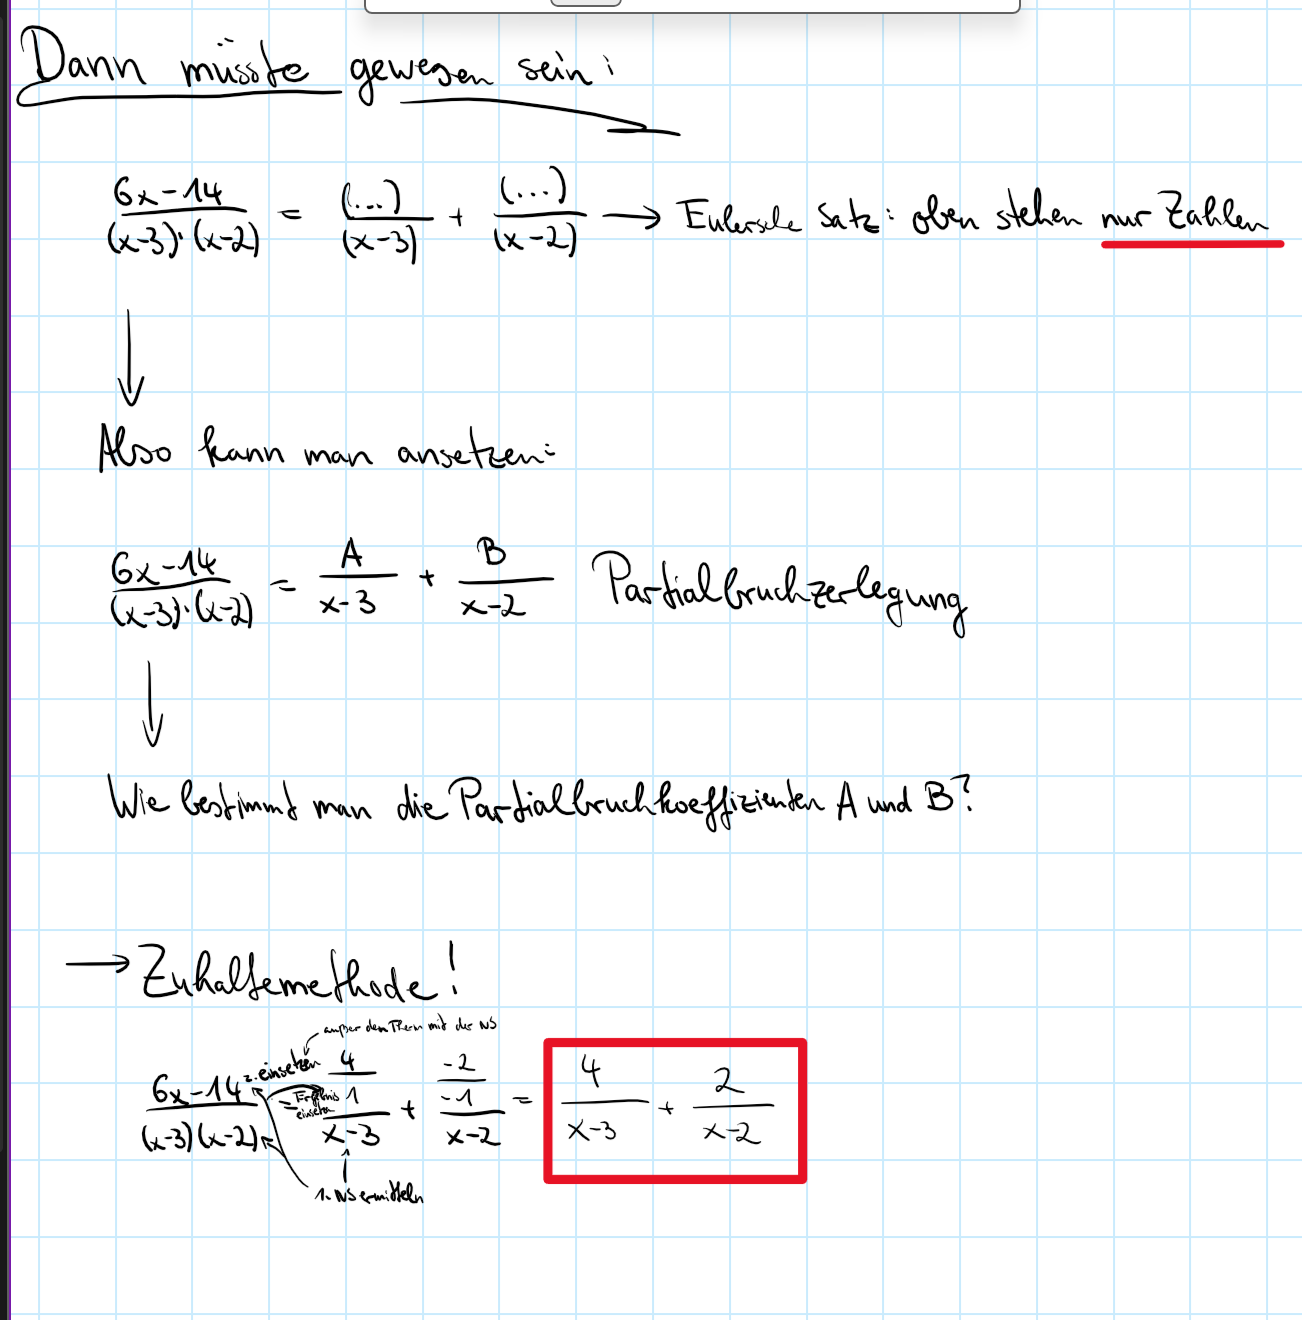 Dann müsste gewesen sein:
6x-14 / (x-3)·(x-2) = (...) / (x-3) + (...) / (x-2) → Eulersche Satz: oben stehen nur Zahlen
Also kann man ansetzen:
6x-14 / (x-3)·(x-2) = A / x-3 + B / x-2 Partialbruchzerlegung
Wie bestimmt man die Partialbruchkoeffizienten A und B?
→ Zuhaltemethode!
außer dem Therm mit der NS
2. einsetzen
= Ergebnis einsetzen
6x-14 / (x-3)(x-2) = 4/1 / x-3 + -2/-1 / x-2 = 4 / x-3 + 2 / x-2
1. NS ermitteln